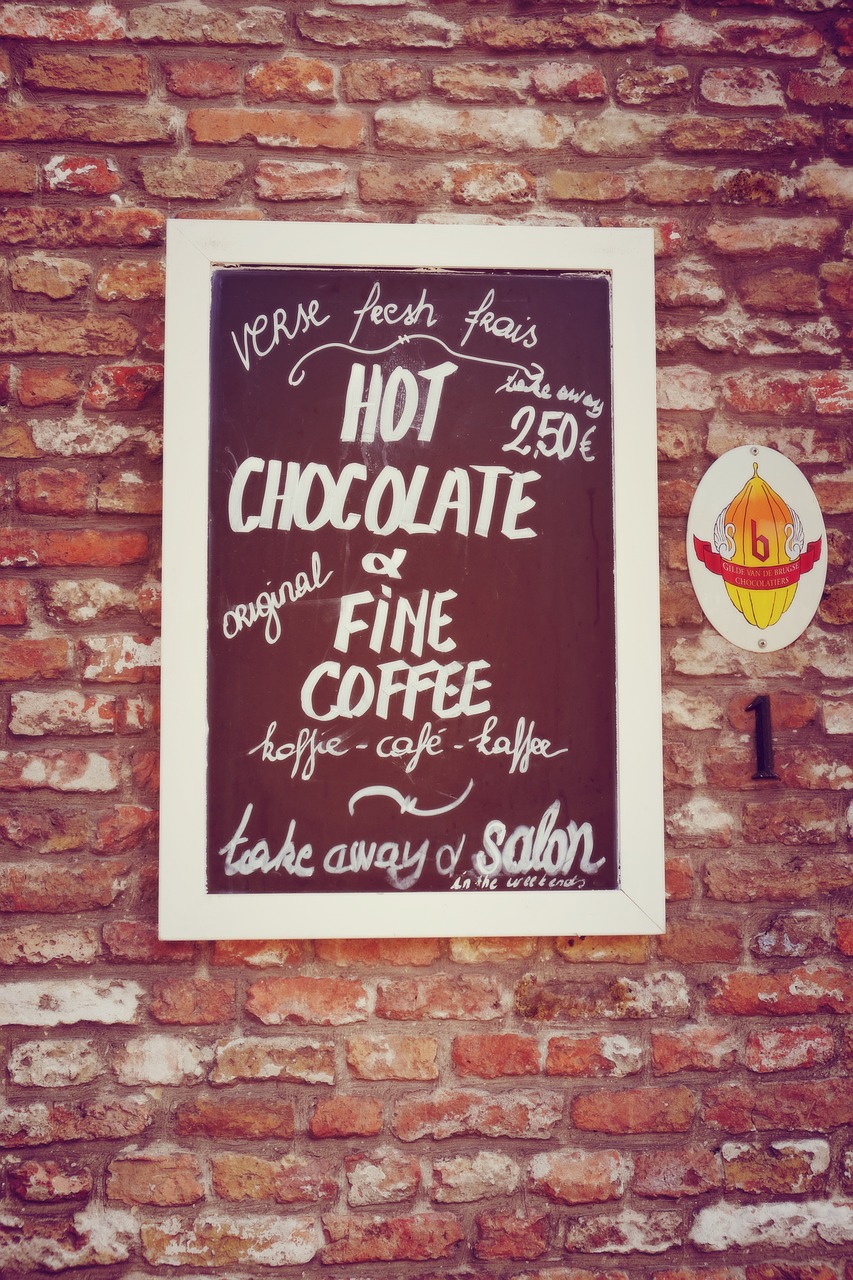 VERSE fresh frais
take away
2,50€
HOT
CHOCOLATE
&
original
FiNE
COFFEE
koffie - café - kaffee
take away & salon
in the weekends
b
GILDE VAN DE BRUGSE
CHOCOLATIERS
1